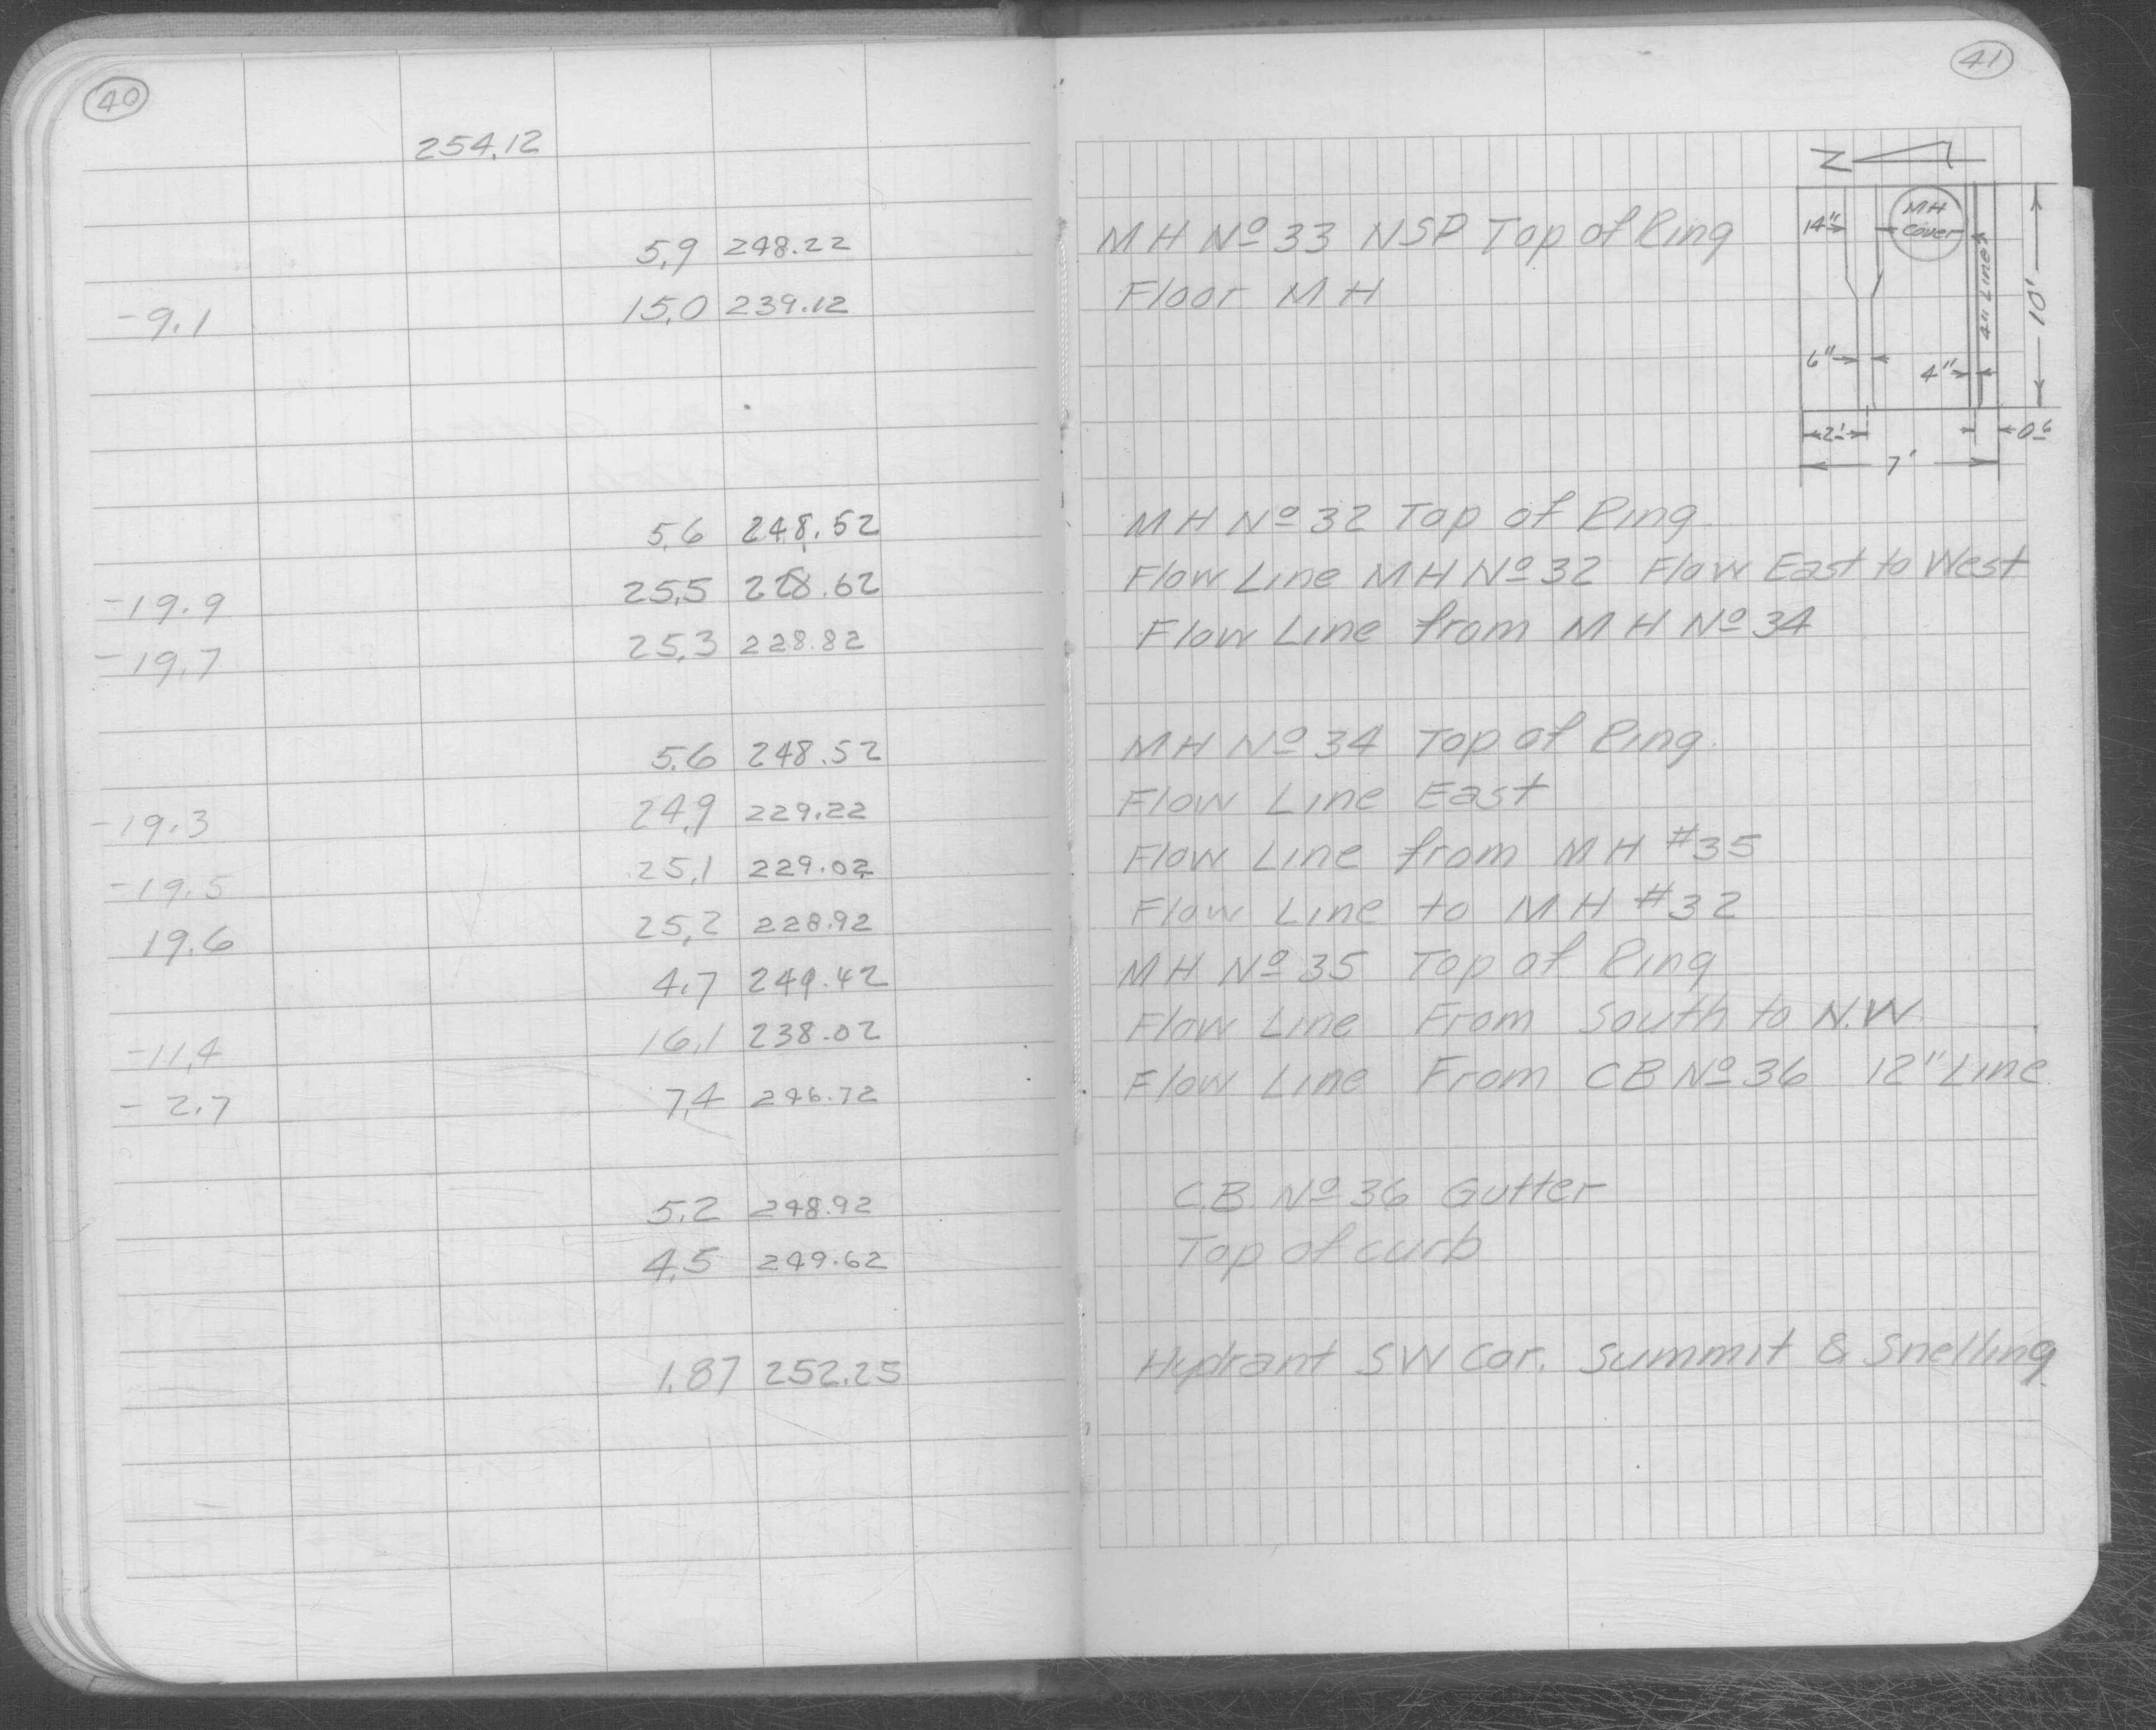 40
254.12
5.9 248.22
-9.1 15.0 239.12
5.6 248.52
-19.9 25.5 228.62
-19.7 25.3 228.82
5.6 248.52
-19.3 24.9 229.22
-19.5 25.1 229.02
19.6 25.2 228.92
4.7 249.42
-11.4 16.1 238.02
-2.7 7.4 246.72
5.2 248.92
4.5 249.62
1.87 252.25
41
N
MH Nº 33 NSP Top of Ring
Floor MH
14"
MH
Cover
4" Lines
10'
6"
4"
2'
0.6
7'
MH Nº 32 Top of Ring
Flow Line MH Nº 32 Flow East to West
Flow Line from MH Nº 34
MH Nº 34 Top of Ring
Flow Line East
Flow Line from MH #35
Flow Line to MH #32
MH Nº 35 Top of Ring
Flow Line From South to N.W.
Flow Line From CB Nº 36 12" Line
C.B. Nº 36 Gutter
Top of curb
Hydrant SW Cor. Summit & Snelling